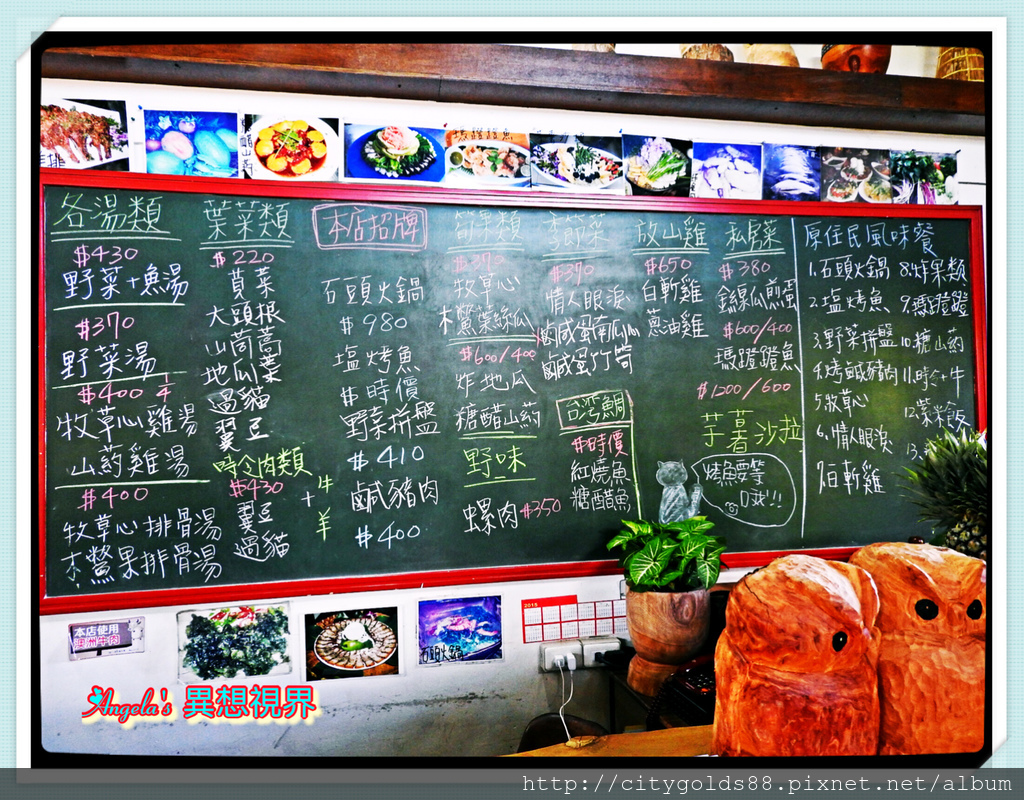 各湯類
$430
野菜+魚湯
$370
野菜湯
$400 1/4
牧草心雞湯
山葯雞湯
$400
牧草心排骨湯
木虌果排骨湯
葉菜類
$220
莧菜
大頭根
山茼蒿
地瓜葉
過貓
翼豆
時令肉類
$430
翼豆
過貓
+牛
羊
本店招牌
石頭火鍋
$980
塩烤魚
$時價
野菜拼盤
$410
鹹豬肉
$400
筍果類
$370
牧草心
木虌葉絲瓜
$600/400
炸地瓜
糖醋山葯
野味
螺肉$350
季節菜
$370
情人眼淚
鹹蛋南瓜
鹹蛋竹筍
台湾鯛
$時價
紅燒魚
糖醋魚
放山雞
$650
白斬雞
蔥油雞
私房菜
$380
絲瓜煎蛋
$600/400
瑪蹬蹬魚
$1200/600
芋薯沙拉
烤魚要等
口哦!!
原住民風味餐
1.石頭火鍋
2.塩烤魚
3.野菜拼盤
4.烤鹹豬肉
5.牧草心
6.情人眼淚
7.白斬雞
8.炸果類
9.瑪蹬蹬
10.糖山葯
11.時令+牛
12.紫米飯
13.
本店使用
澳洲牛肉
石頭火鍋
2015
Angela's 異想視界
http://citygolds88.pixnet.net/album